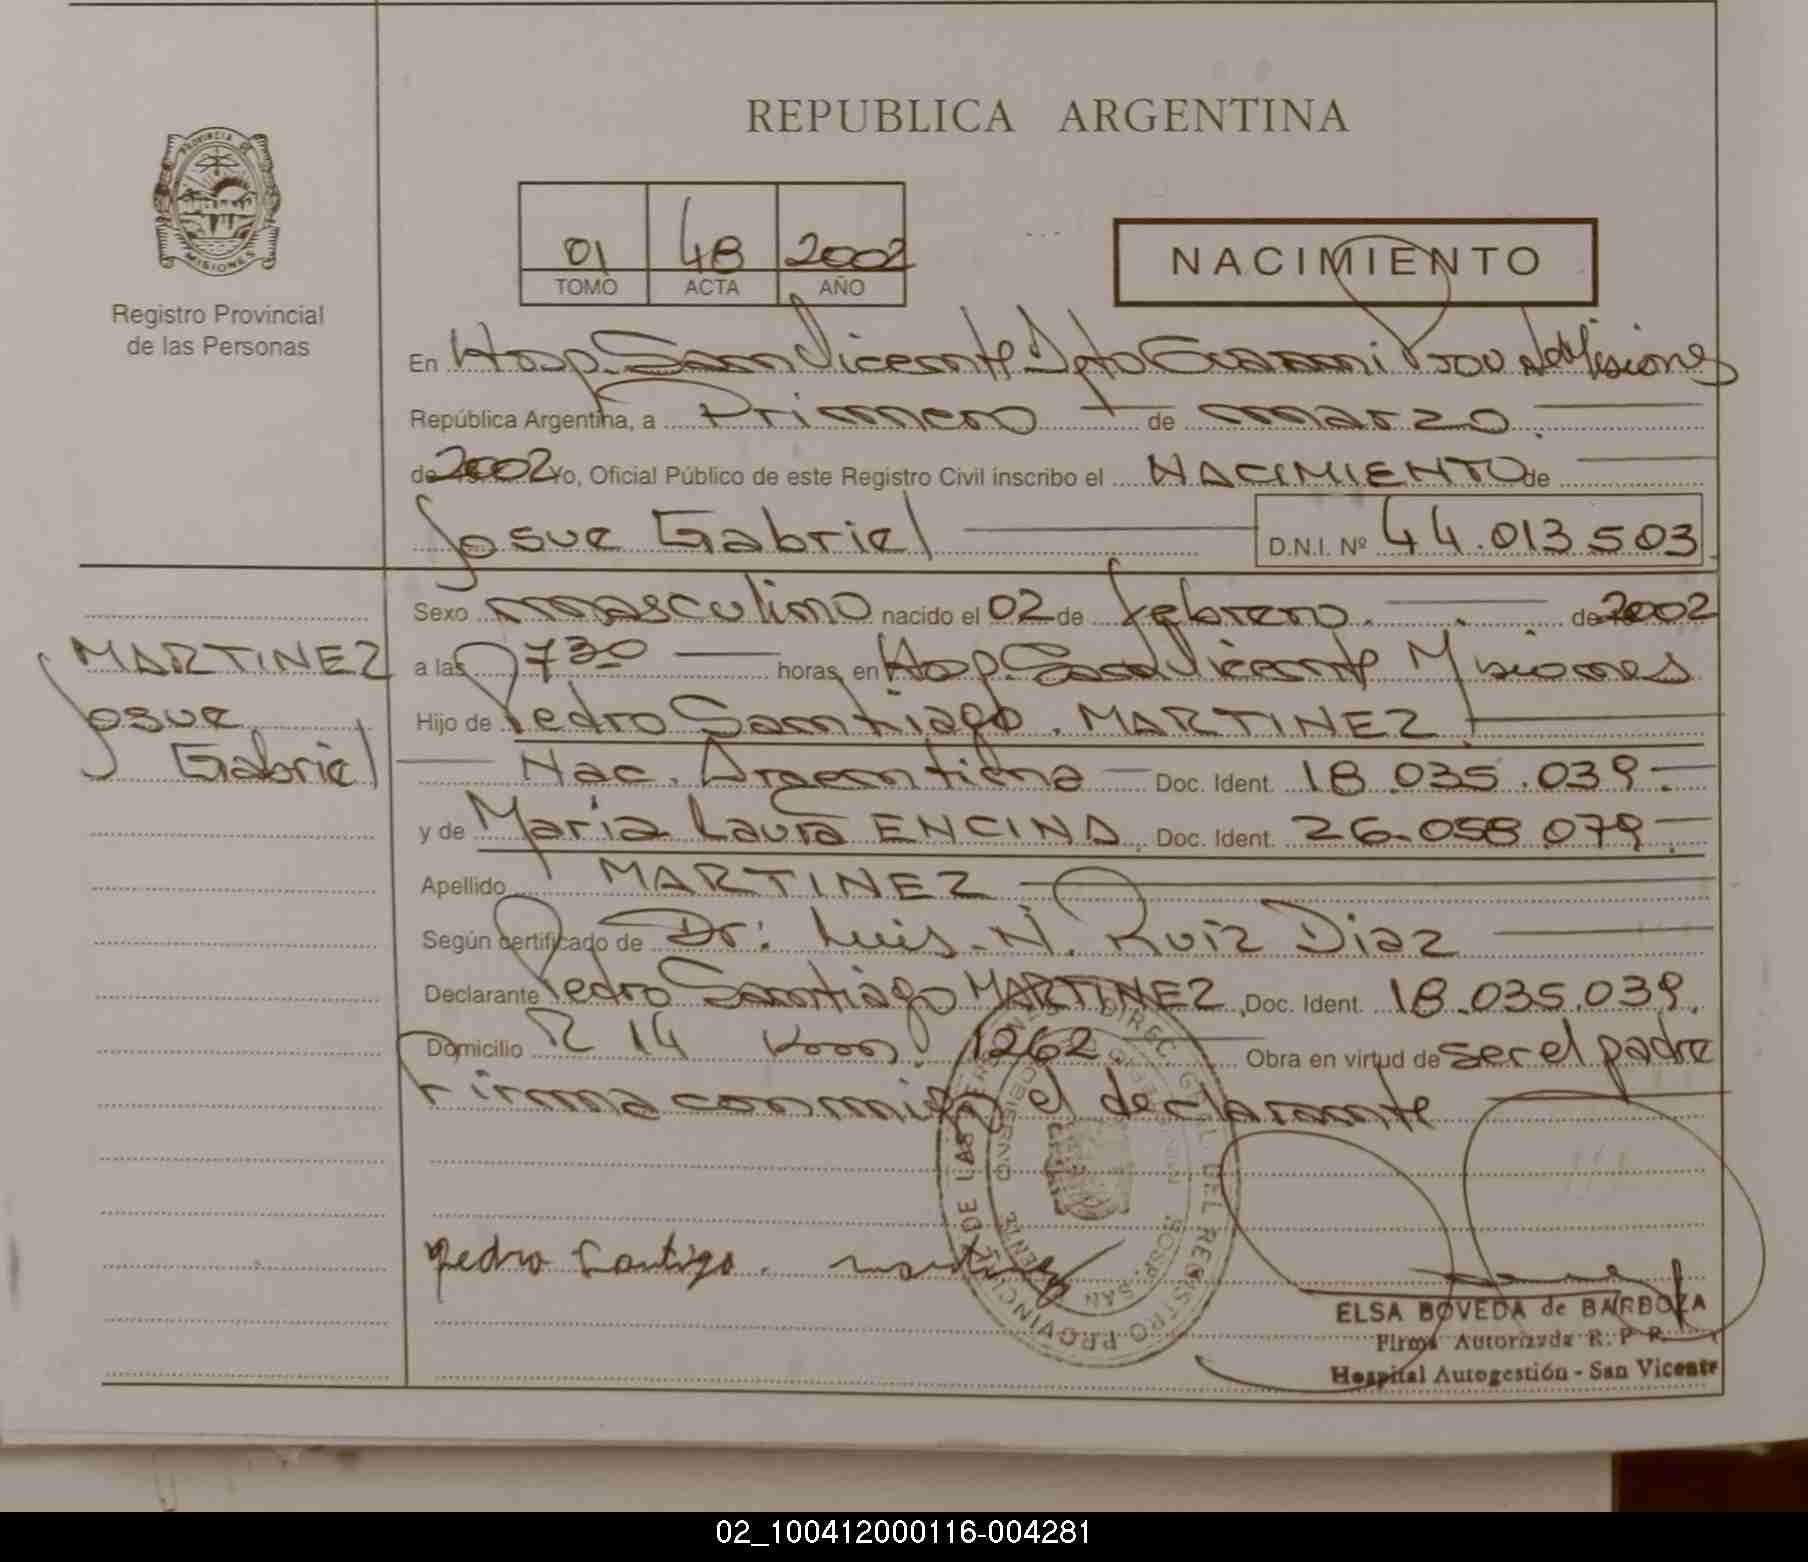 REPUBLICA ARGENTINA
PROVINCIA DE
MISIONES
Registro Provincial
de las Personas
01 48 2002
TOMO ACTA AÑO
NACIMIENTO
En Hosp. San Vicente Dpto Guarani Prov de Misiones
República Argentina, a Primero de marzo
de 2002 Yo, Oficial Público de este Registro Civil inscribo el NACIMIENTO de
Josue Gabriel D.N.I. Nº 44.013503
Sexo masculino nacido el 02 de febrero. de 2002
a las 730 horas, en Hosp. San Vicente Misiones
Hijo de Pedro Santiago. MARTINEZ
Nac. Argentina Doc. Ident. 18.035.039
y de Maria Laura ENCINA Doc. Ident. 26.058.079
Apellido MARTINEZ
Según certificado de Dr: Luis. N. Ruiz Diaz
Declarante Pedro Santiago MARTINEZ, Doc. Ident. 18.035.039.
Domicilio R 14 1262 Obra en virtud de ser el padre
Firma conmigo el declarante
MARTINEZ
Josue
Gabriel
pedro Santigo. martinez
DIREC. GRAL. DEL REGISTRO PROVINCIAL DE LAS
HOSP. SAN
ELSA BOVEDA de BARBOZA
Firma Autorizada R. P. P.
Hospital Autogestión - San Vicente
02_100412000116-004281